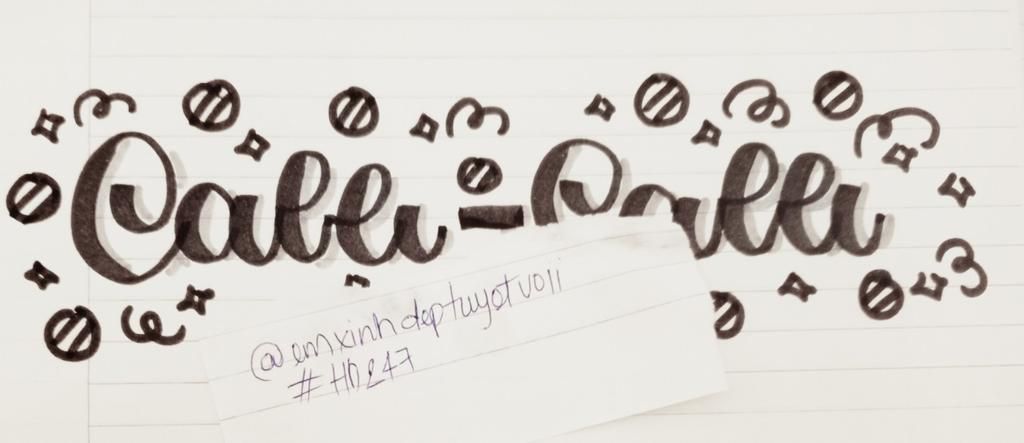 Calli-Calli
@emxinhdeptuyetvoii
#HD247